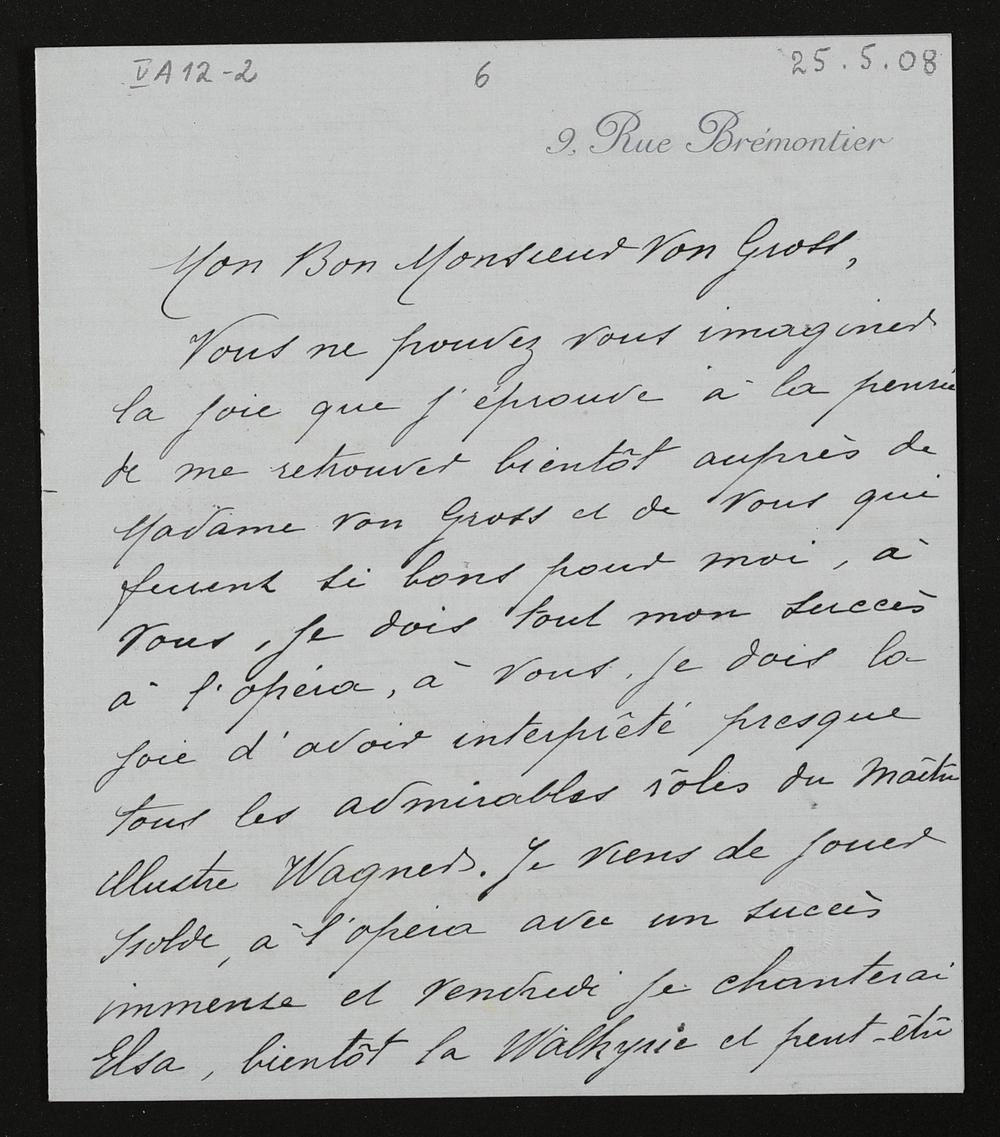 V A 12-2 6 25.5.08
9, Rue Brémontier
Mon Bon Monsieur Von Gross,
Vous ne pouvez vous imaginer
la joie que j'éprouve à la pensée
de me retrouver bientôt auprès de
Madame von Gross et de vous qui
furent si bons pour moi, à
vous, je dois tout mon succès
à l'opéra, à vous, je dois la
joie d'avoir interprêté presque
tous les admirables rôles du Maître
illustre Wagner. Je viens de jouer
Isolde, à l'opéra avec un succès
immense et vendredi je chanterai
Elsa, bientôt la Walkyrie et peut-être